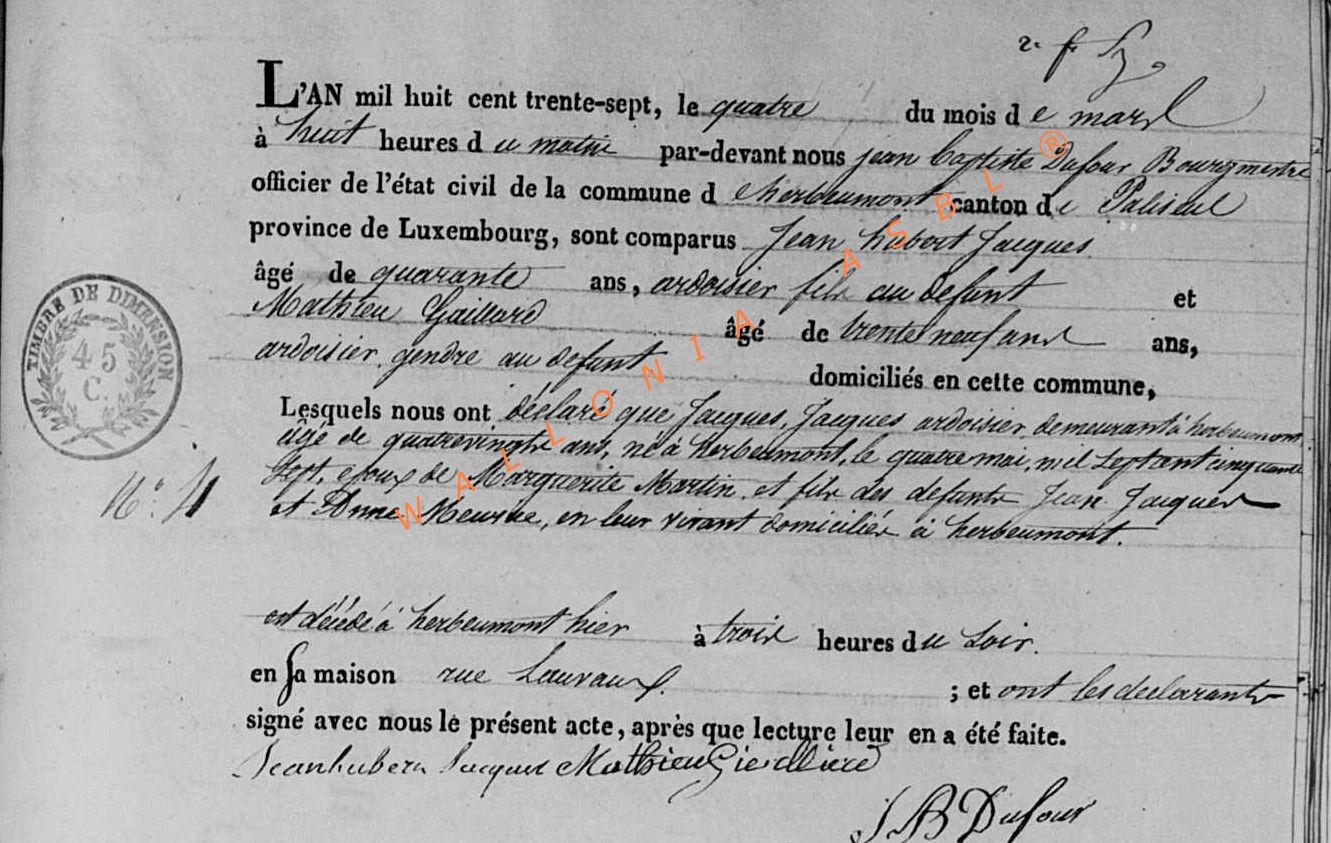 L'AN mil huit cent trente-sept, le quatre du mois d e mars
à huit heures d u matin par-devant nous jean baptiste Dufour Bourgmestre
officier de l'état civil de la commune d e herbeumont canton de Paliseul
province de Luxembourg, sont comparus Jean hubert Jacques
âgé de quarante ans, ardoisier fils au defunt et
Mathieu Gaillard âgé de trente neuf ans ans,
ardoisier gendre au defunt domiciliés en cette commune,
Lesquels nous ont déclaré que Jacques, Jacques ardoisier demeurant à herbeumont
âgé de quatrevingts ans, né à herbeumont, le quatre mai, mil sept cent cinquante
sept, epoux de Marguerite Martin et fils des defunts Jean Jacques
et Anne, en leur vivant domiciliés à herbeumont.
N° 4
est décédé à herbeumont hier à trois heures du soir.
en sa maison rue ; et ont les declarants
signé avec nous le présent acte, après que lecture leur en a été faite.
Jeanhubert Jacques Mathieu
J B Dufour
TIMBRE DE DIMENSION
45
C.
WALLONIA ASBL ®